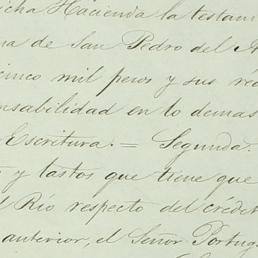 icha Hacienda la testam
na de San Pedro del A
cinco mil pesos y sus réd
nsabilidad en lo demas
Escritura. = Segunda.
y tastos que tiene que
l Rio respecto del crédit
anterior, el Señor Portug